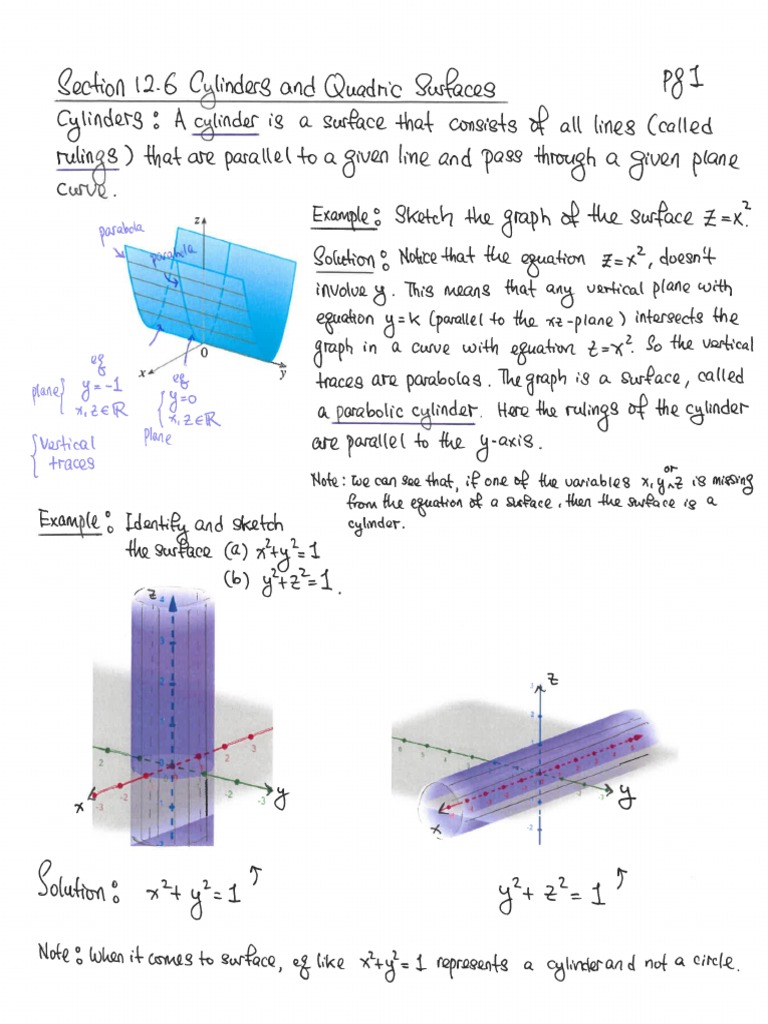 Section 12.6 Cylinders and Quadric Surfaces
Pg 1
Cylinders: A cylinder is a surface that consists of all lines (called
rulings) that are parallel to a given line and pass through a given plane
curve.
Example: Sketch the graph of the surface z=x².
Solution: Notice that the equation z=x², doesn't
involve y. This means that any vertical plane with
equation y=k (parallel to the xz-plane) intersects the
graph in a curve with equation z=x². So the vertical
traces are parabolas. The graph is a surface, called
a parabolic cylinder. Here the rulings of the cylinder
are parallel to the y-axis.
Note: We can see that, if one of the variables x, y, or z is missing
from the equation of a surface, then the surface is a
cylinder.
parabola
parabola
z
0
x
y
eg
plane { y=-1
x, z∈ℝ
eg
{ y=0
x, z∈ℝ
plane
{ vertical
traces
Example: Identify and sketch
the surface (a) x²+y²=1
(b) y²+z²=1.
z
x
y
z
x
y
Solution: x²+y²=1
y²+z²=1
Note: When it comes to surface, eq like x²+y²=1 represents a cylinder and not a circle.